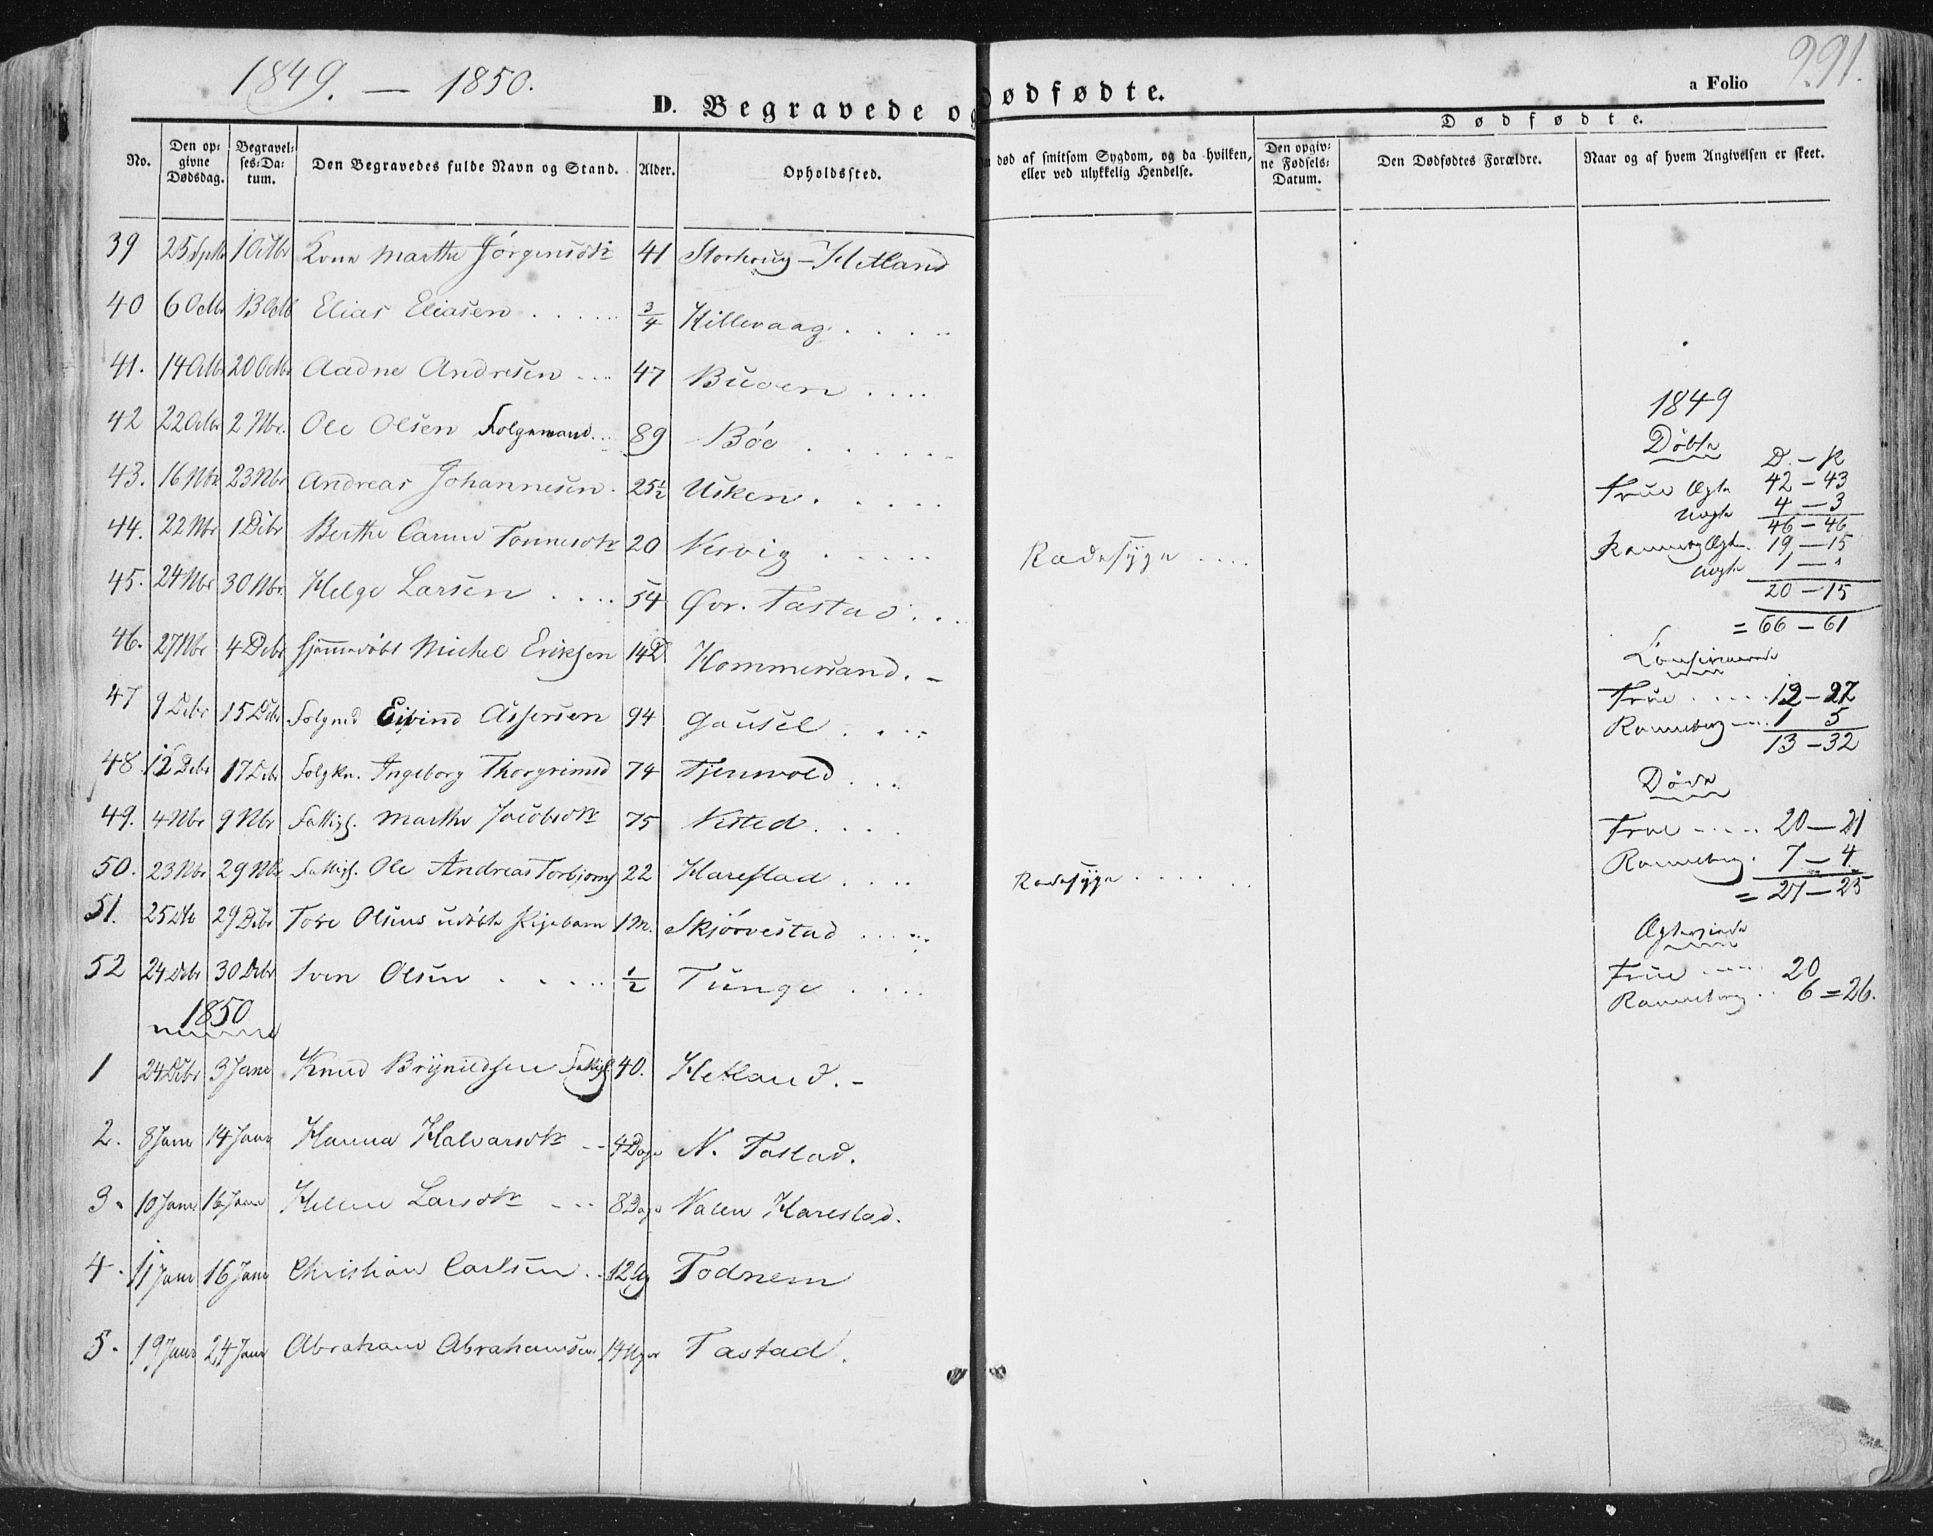 1849. — 1850.
291.
D. Begravede og Dødfødte.
a Folio
No.
Den op-
givne
Dødsdag.
Begravel-
ses-Da-
tum.
Den Begravedes fulde Navn og Stand.
Alder.
Opholdssted.
død af smitsom Sygdom, og da hvilken,
eller ved ulykkelig Hendelse.
Dødfødte.
Den opgiv-
ne Fødsels-
Datum.
Den Dødfødtes Forældre.
Naar og af hvem Angivelsen er skeet.
39 25 Septbr 1 Octbr Kone Marthe Jörgensdtr 41 Storhoug - Hetland
40 6 Octbr 13 Octb Elias Eliasen 3/4 Hillevaag
41. 14 Octbr 20 Octbr Aadne Andresen 47 Buoen
42 22 Octbr 2 Nbr. Ole Olsen Folgemand 89 Böe
43. 16 Nbr 23 Nbr Andreas Johannesen 25½ Usken
44. 22 Nbr 1 Dcbr Berthe Tonnesdtr 20 Nesvig Radesyge
45. 24 Nbr 30 Nbr. Helge Larsen 54 Øvr. Tastad
46. 27 Nbr 4 Decbr hjemmedøbt Michel Eriksen 14 D. Hommersand.
47 9 Dcbr 15 Dcbr Folgmd Eivind Assersen 94 Gausel
48. 12 Debr 17 Debr Folgkn. Ingeborg Thorgrimsd 74 Tjensvold
49. 4 Nbr 9 Nbr Fattigl. Marthe Jacobsdtr 75 Nested
50. 23 Nbr 29 Nbr Fattigl. Ole Andreas Torbjorns 22 Harestad Radesyge
51. 25 29 Debr Tore Olsens udøbte Pigebarn 1 M. Skjörvestad
52 24 Debr 30 Debr Sven Olsen 1/2 Tunge
1850
1 24 Debr 3 Janr Knud Brynildsen Fattigl 40. Hetland.
2. 8 Janr 14 Janr Hanna Halvarsdtr 4 Dage N. Tastad.
3. 10 Janr 16 Janr Helene Larsdtr 8 Dage Harestad.
4. 11 Janr 16 Janr Christian Carlsen 12 Ug Todnem
5. 19 Janr 24 Janr Abraham Abrahamsen 14 Uger Tastad.
1849
Døbte
D. - P
Frue Ægte 42 - 43
Uægte 4 - 3
46 - 46
Ranneberg Ægte 19 - 15
Uægte 1 -
20 - 15
= 66 - 61
Confirmerede
Frue 12 - 27
Ranneberg 1 5
13 - 32
Døde
Frue 20 - 21
Ranneberg. 7 - 4
= 27 - 25
Ægteviede
Frue 20
Ranneberg 6 = 26.